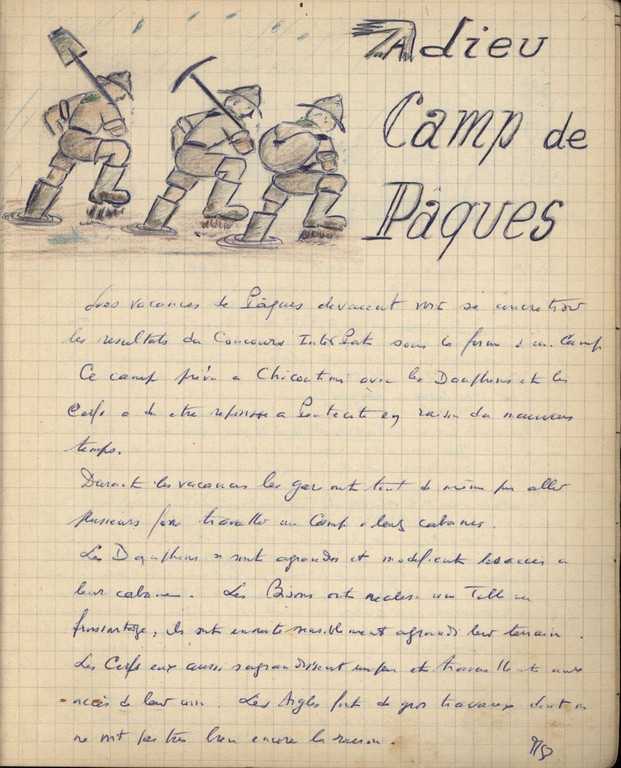 Adieu
Camp de
Pâques
Les vacances de Pâques devaient voir se concretiser
les resultats du Concours Inter Pat. sous la forme d'un Camp
Ce camp prévu a Chicoutimi avec les Dauphins et les
Cerfs a du etre repousse a Pentecote en raison du mauvais
temps.
Durant les vacances les gars ont tout de même pu aller
plusieurs fois travailler au Camp a leurs cabanes.
Les Dauphins se sont agrandis et modifient les acces a
leur cabane. Les Bisons ont une Table
, ils ont ensuite sensiblement agrandi leur terrain.
Les Cerfs eux aussi s'agrandissent un peu et travaillent aux
accès de leur coin. Les Aigles font de gros travaux dont on
ne voit pas très bien encore la raison.